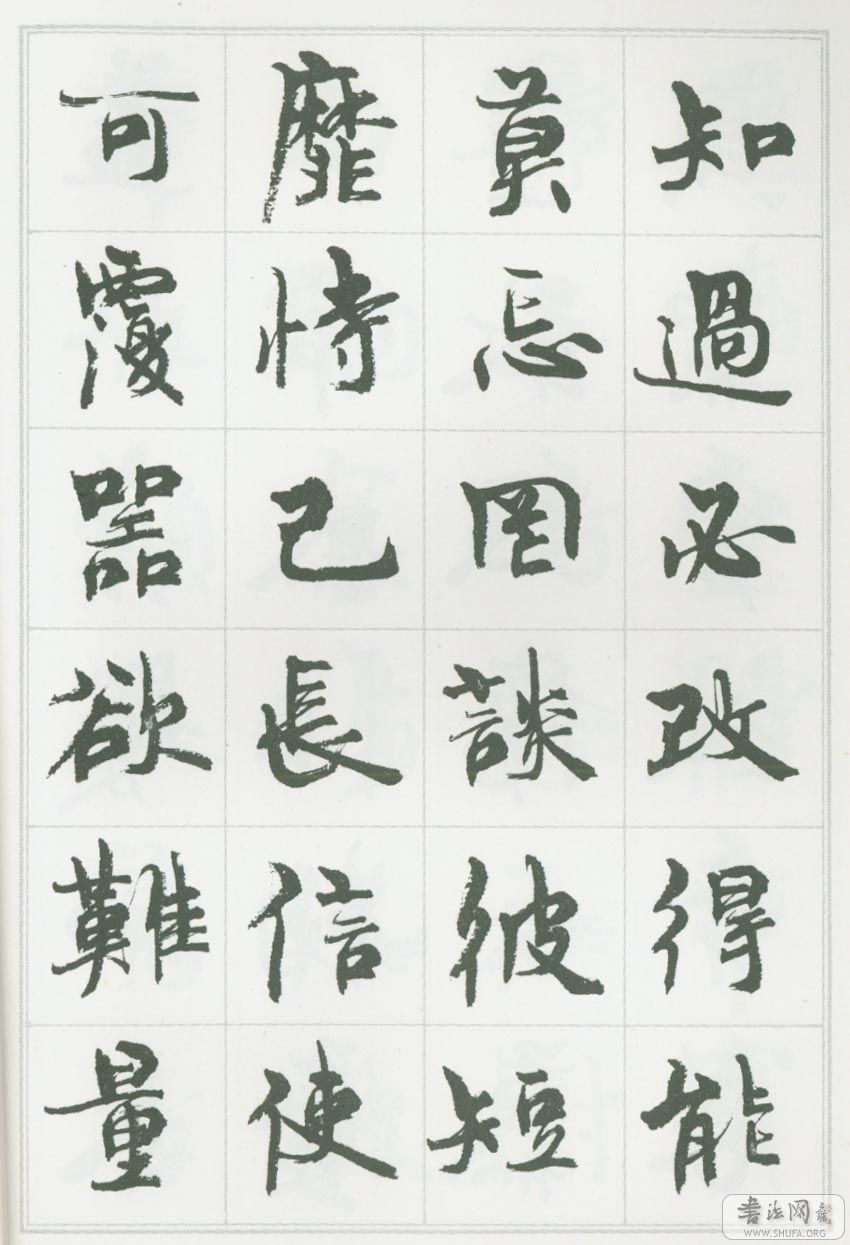 知過必改得能
莫忘罔談彼短
靡恃己長信使
可覆器欲難量
書法网
WWW.SHUFA.ORG